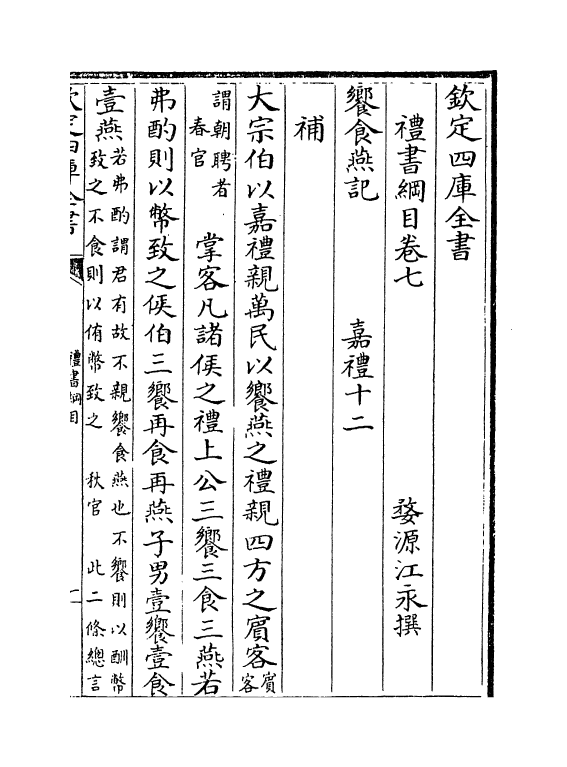 欽定四庫全書
禮書綱目卷七　婺源江永撰
饗食燕記　嘉禮十二
補
大宗伯以嘉禮親萬民以饗燕之禮親四方之賓客賓客
謂朝聘者
春官　掌客凡諸侯之禮上公三饗三食三燕若
弗酌則以幣致之侯伯三饗再食再燕子男壹饗壹食
壹燕若弗酌謂君有故不親饗食燕也不饗則以酬幣
致之不食則以侑幣致之　秋官　此二條總言
欽定四庫全書
禮書綱目